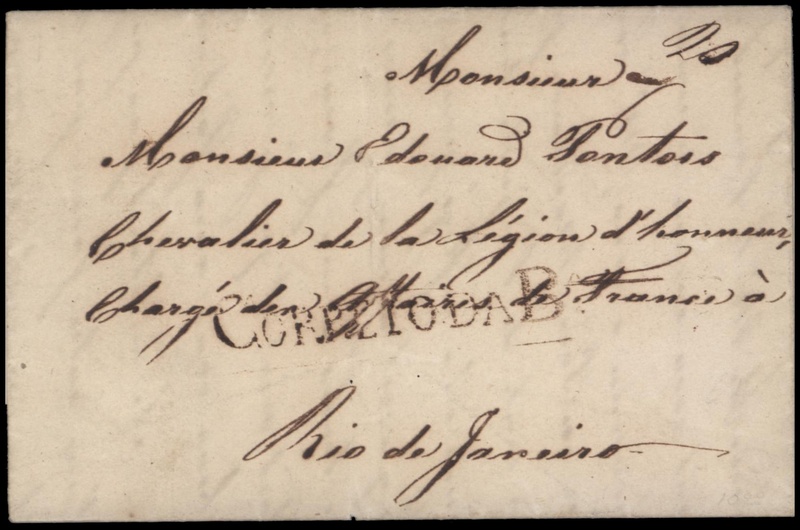 20
Monsieur
Monsieur Edouard Pontois
Chevalier de la Légion d'honneur,
Chargé des Affaires de France à
CORREYO DA BA
Rio de Janeiro